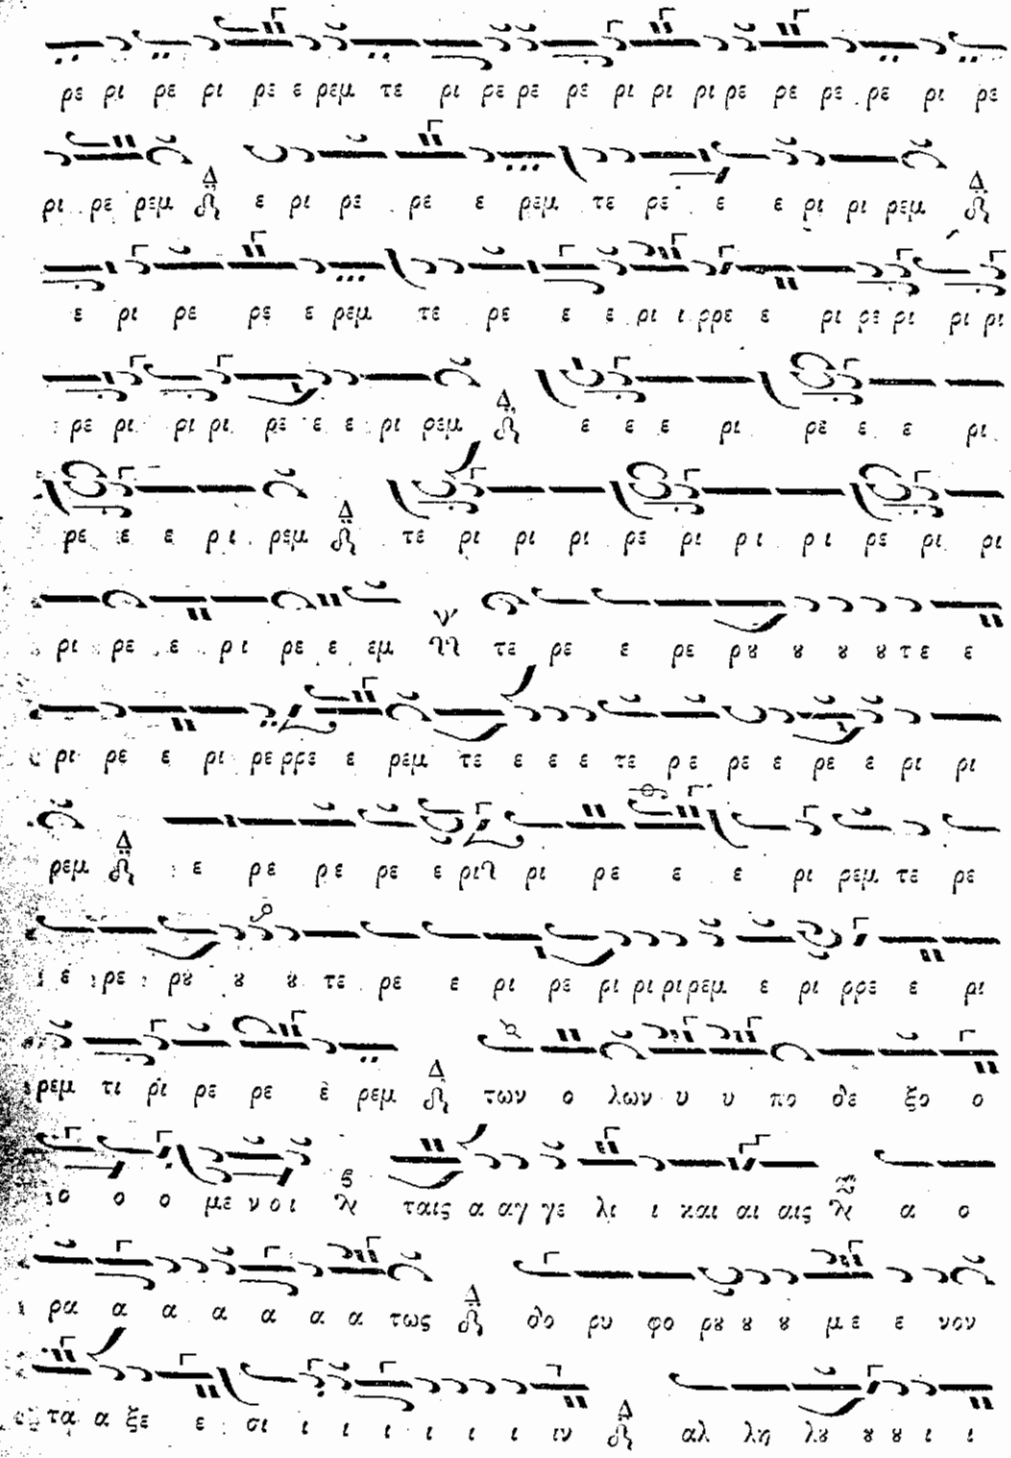 ρε ρι ρε ρι ρε ε ρεμ τε ρι ρε ρε ρε ρι ρι ρι ρε ρε ρε ρε ρι ρε
ρι ρε ρεμ Δ ε ρι ρε ρε ε ρεμ τε ρε ε ε ρι ρι ρεμ Δ
ε ρι ρε ρε ε ρεμ τε ρε ε ε ρι ι ρρε ε ρι ρε ρι ρι ρι
ρε ρι ρι ρι ρε ε ε ρι ρεμ Δ ε ε ε ρι ρε ε ε ρι
ρε ε ε ρι ρεμ Δ τε ρι ρι ρι ρε ρι ρι ρι ρε ρι ρι
ρι ρε ε ρι ρε ε εμ ν τε ρε ε ρε ρȣ ȣ ȣ ȣ τε ε
ρι ρε ε ρι ρε ρρε ε ρεμ τε ε ε ε τε ρε ρε ε ρε ε ρι ρι
ρεμ Δ ε ρε ρε ρε ε ρι ρι ρε ε ε ρι ρεμ τε ρε
ε ρε ρȣ ȣ ȣ τε ρε ε ρι ρε ρι ρι ρι ρεμ ε ρι ρρε ε ρι
ρεμ τι ρι ρε ρε ε ρεμ Δ των ο λων υ υ πο δε ξο ο
ο ο ο με νοι ταις α αγ γε λι ι και αι αις α ο
ρα α α α α α α τως Δ δο ρυ φο ρȣ ȣ ȣ με ε νον
τα α ξε ε σι ι ι ι ι ι ι ιν Δ αλ λη λȣ ȣ ȣ ι ι